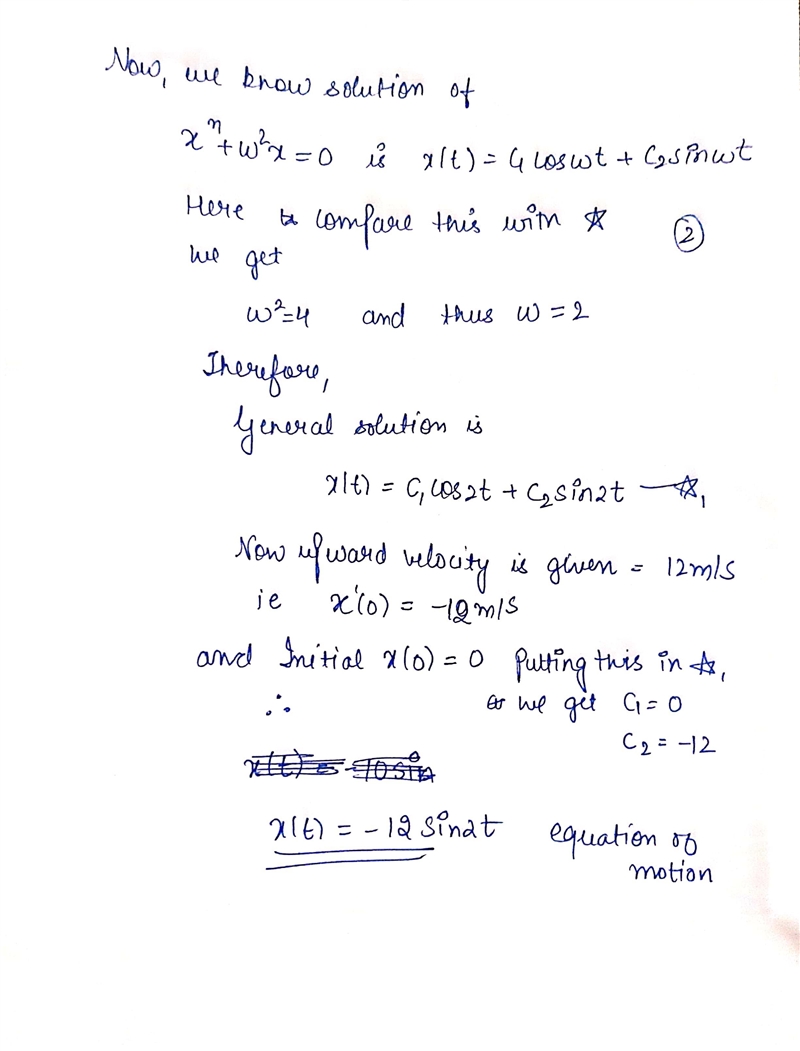 Now, we know solution of
xⁿ + w²x = 0 is x(t) = C₁ cos wt + C₂ sin wt
Here compare this with ☆
②
we get
w² = 4 and thus w = 2
Therefore,
General solution is
x(t) = C₁ cos 2t + C₂ sin 2t —☆₁
Now upward velocity is given = 12 m/s
ie x'(0) = -12 m/s
and Initial x(0) = 0 Putting this in ☆₁
∴ we get C₁ = 0
C₂ = -12
x(t) = -10 sin
x(t) = -12 sin 2t equation of
motion